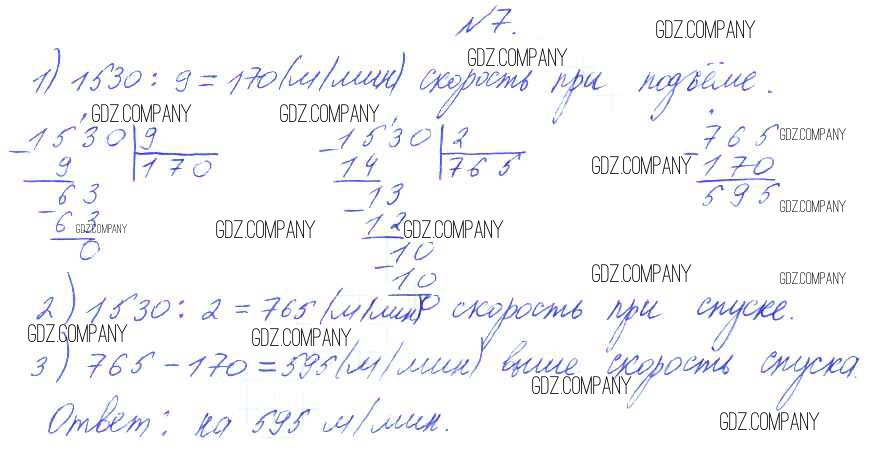 №7.
GDZ.COMPANY
GDZ.COMPANY
1) 1530 : 9 = 170 (м/мин) скорость при подъёме.
GDZ.COMPANY GDZ.COMPANY
1530 | 9 1530 | 2 765 GDZ.COMPANY
- 9 170 - 14 765 GDZ.COMPANY - 170
63 13 595 GDZ.COMPANY
- 63 GDZ.COMPANY GDZ.COMPANY - 12 GDZ.COMPANY
0 10
- 10 GDZ.COMPANY GDZ.COMPANY
0
2) 1530 : 2 = 765 (м/мин) скорость при спуске.
GDZ.COMPANY GDZ.COMPANY
3) 765 - 170 = 595 (м/мин) выше скорость спуска.
GDZ.COMPANY
Ответ: на 595 м/мин. GDZ.COMPANY